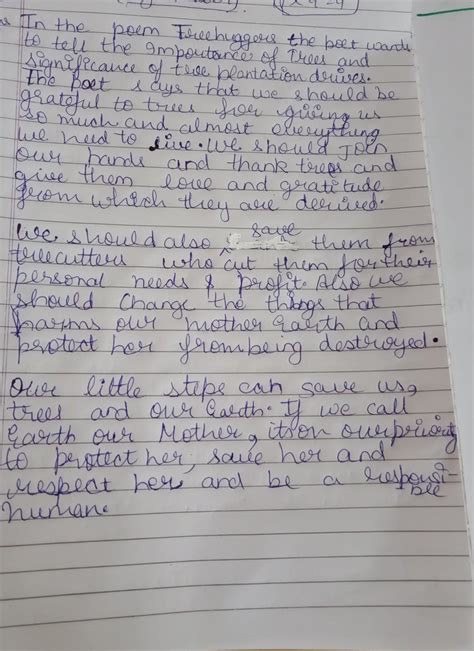 In the poem Treehuggers the poet wants
to tell the Importance of Trees and
Significance of tree plantation drives.
The poet says that we should be
grateful to trees for giving us
so much and almost everything
we need to live. We should join
our hands and thank trees and
give them love and gratitude
from which they are derived.
We should also save them from
treecutters who cut them for their
personal needs & profit. Also we
should change the things that
harms our mother Earth and
protect her from being destroyed.
Our little steps can save us,
trees and our Earth. If we call
Earth our Mother, its on our priority
to protect her, save her and
respect her and be a responsi-
ble
human.